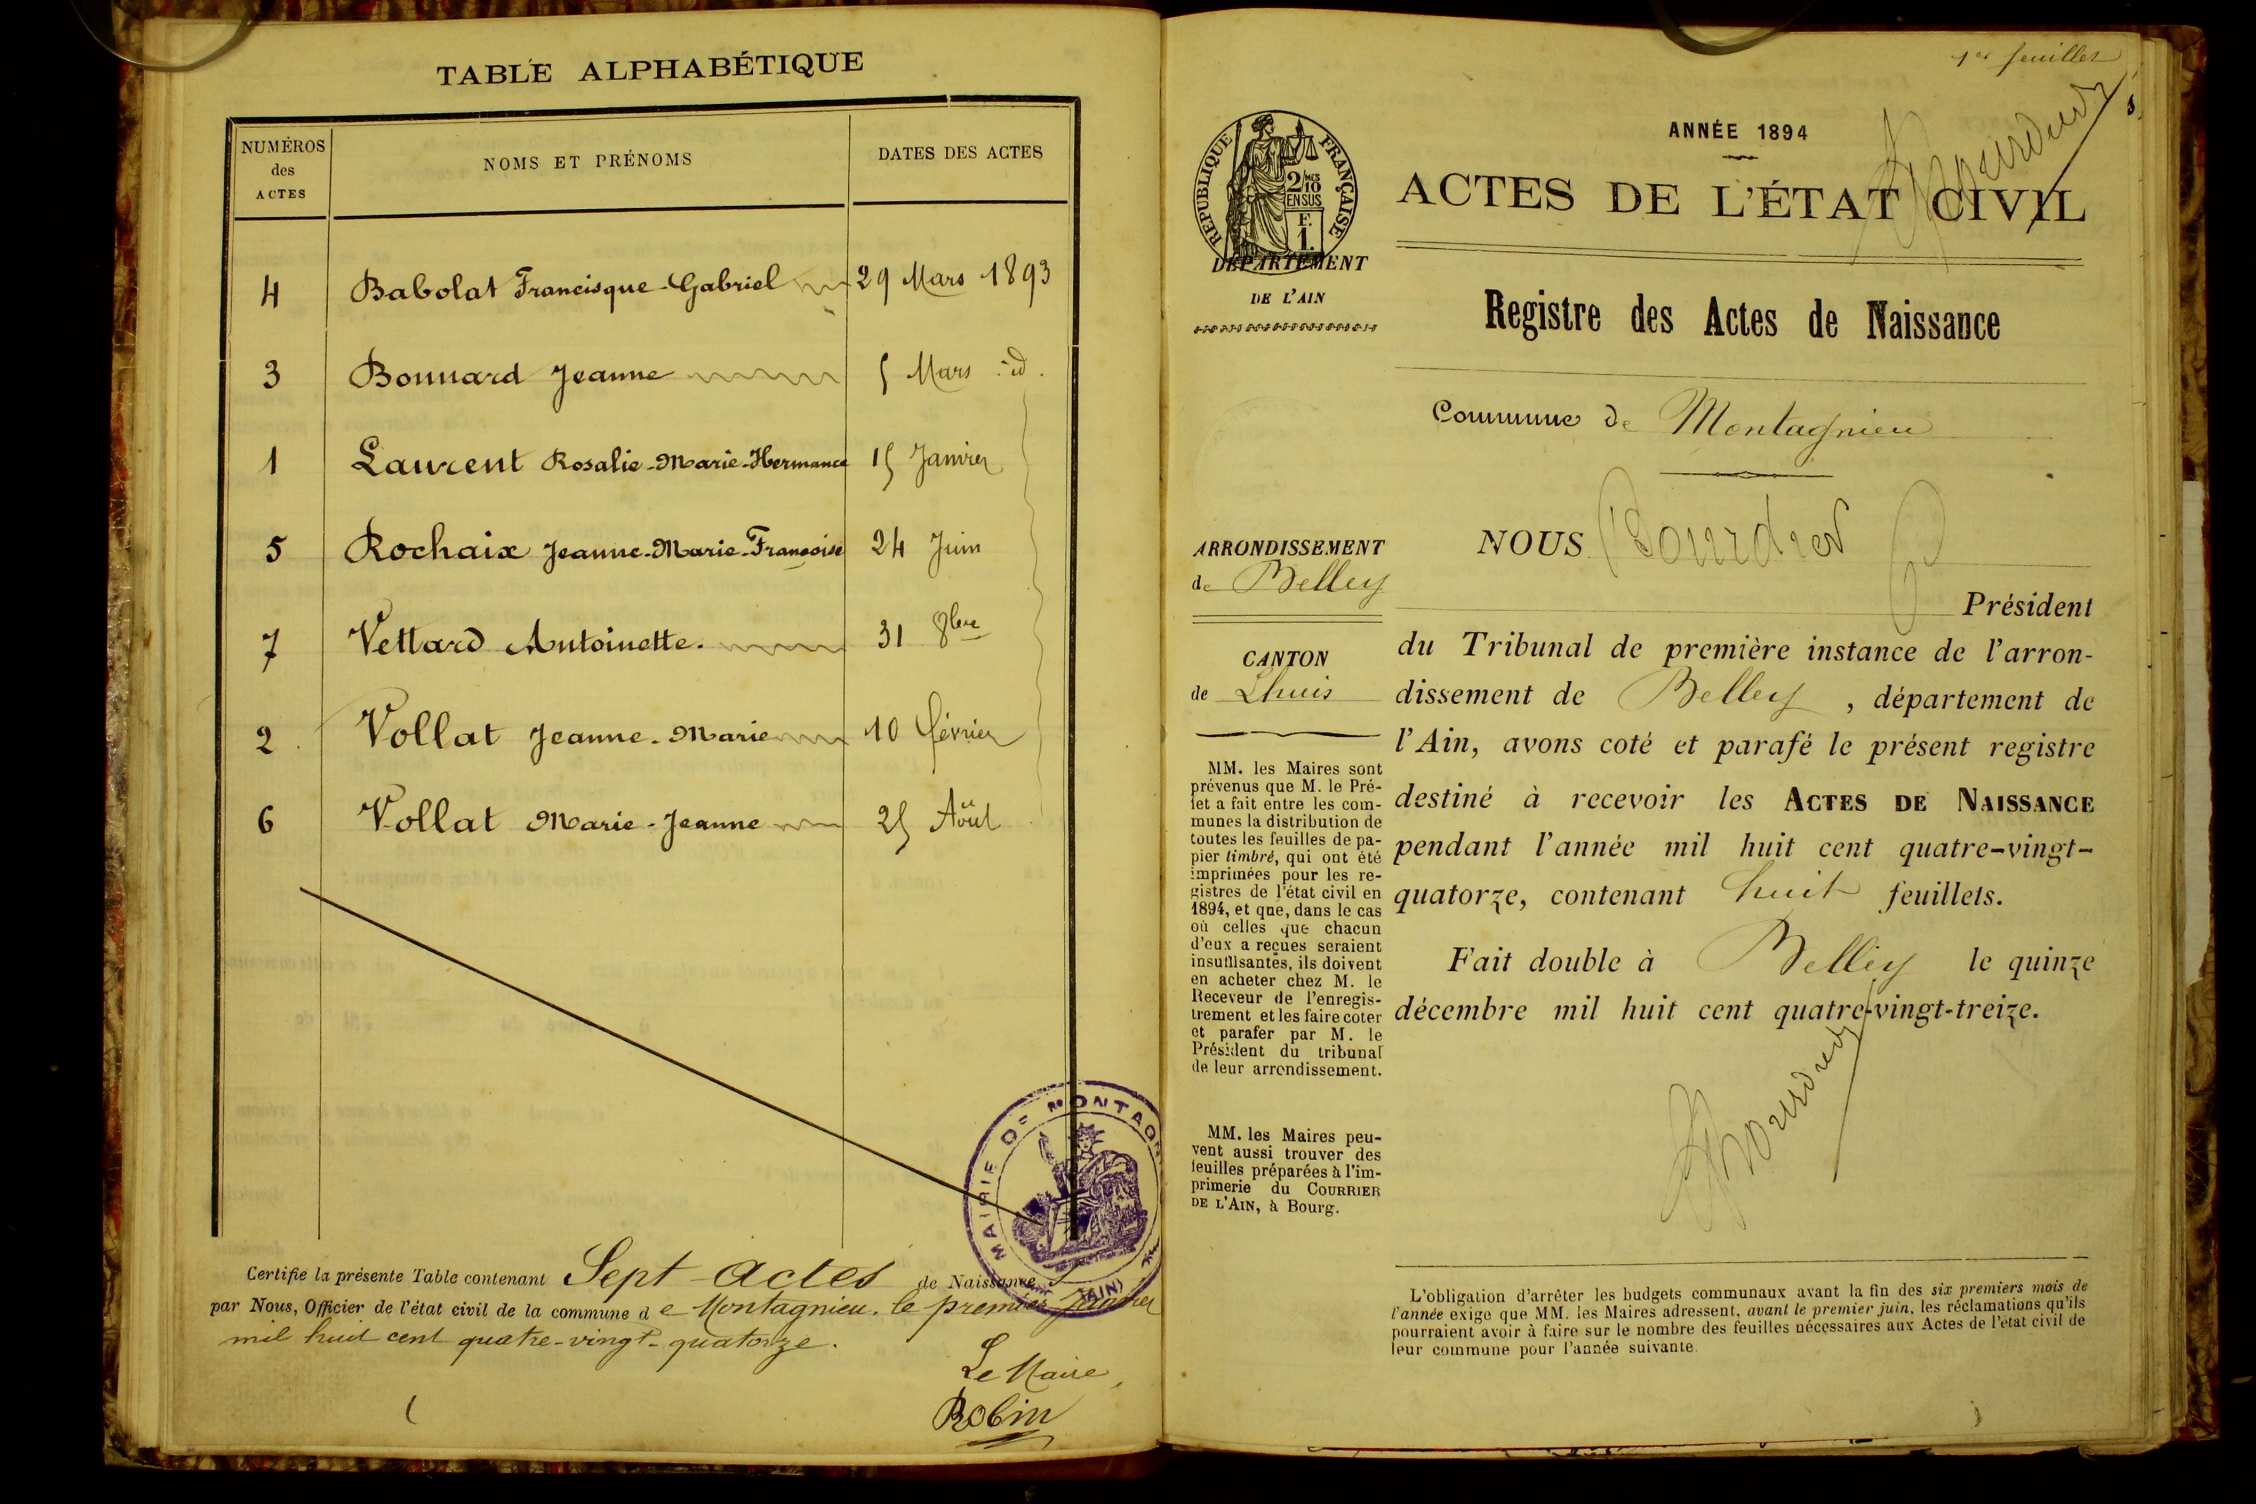 TABLE ALPHABÉTIQUE
NUMÉROS des ACTES
NOMS ET PRÉNOMS
DATES DES ACTES
4 Babolat Francisque-Gabriel 29 Mars 1893
3 Bonnard Jeanne 5 Mars id.
1 Laurent Rosalie-Marie-Hermance 15 Janvier
5 Rochaix Jeanne-Marie-Françoise 24 Juin
7 Vettard Antoinette. 31 8bre
2 Vollat Jeanne-Marie 10 février
6 Vollat Marie-Jeanne 25 Août
MAIRIE DE MONTAGN
(AIN)
Certifie la présente Table contenant Sept actes de Naissance
par Nous, Officier de l'état civil de la commune de Montagnieu, le premier Janvier
mil huit cent quatre-vingt-quatorze.
Le Maire,
Robin
1er feuillet
RÉPUBLIQUE FRANÇAISE
2/10 MES
EN SUS
F.
1.
DÉPARTEMENT
DE L'AIN
ARRONDISSEMENT
de Belley
CANTON
de Lhuis
MM. les Maires sont
prévenus que M. le Pré-
fet a fait entre les com-
munes la distribution de
toutes les feuilles de pa-
pier timbré, qui ont été
imprimées pour les re-
gistres de l'état civil en
1894, et que, dans le cas
où celles que chacun
d'eux a reçues seraient
insuffisantes, ils doivent
en acheter chez M. le
Receveur de l'enregis-
trement et les faire coter
et parafer par M. le
Président du tribunal
de leur arrondissement.
MM. les Maires peu-
vent aussi trouver des
feuilles préparées à l'im-
primerie du COURRIER
DE L'AIN, à Bourg.
ANNÉE 1894
ACTES DE L'ÉTAT CIVIL
Registre des Actes de Naissance
Commune de Montagnieu
NOUS Bourdier
Président
du Tribunal de première instance de l'arron-
dissement de Belley, département de
l'Ain, avons coté et parafé le présent registre
destiné à recevoir les ACTES DE NAISSANCE
pendant l'année mil huit cent quatre-vingt-
quatorze, contenant huit feuillets.
Fait double à Belley le quinze
décembre mil huit cent quatre-vingt-treize.
L'obligation d'arrêter les budgets communaux avant la fin des six premiers mois de
l'année exige que MM. les Maires adressent, avant le premier juin, les réclamations qu'ils
pourraient avoir à faire sur le nombre des feuilles nécessaires aux Actes de l'état civil de
leur commune pour l'année suivante.